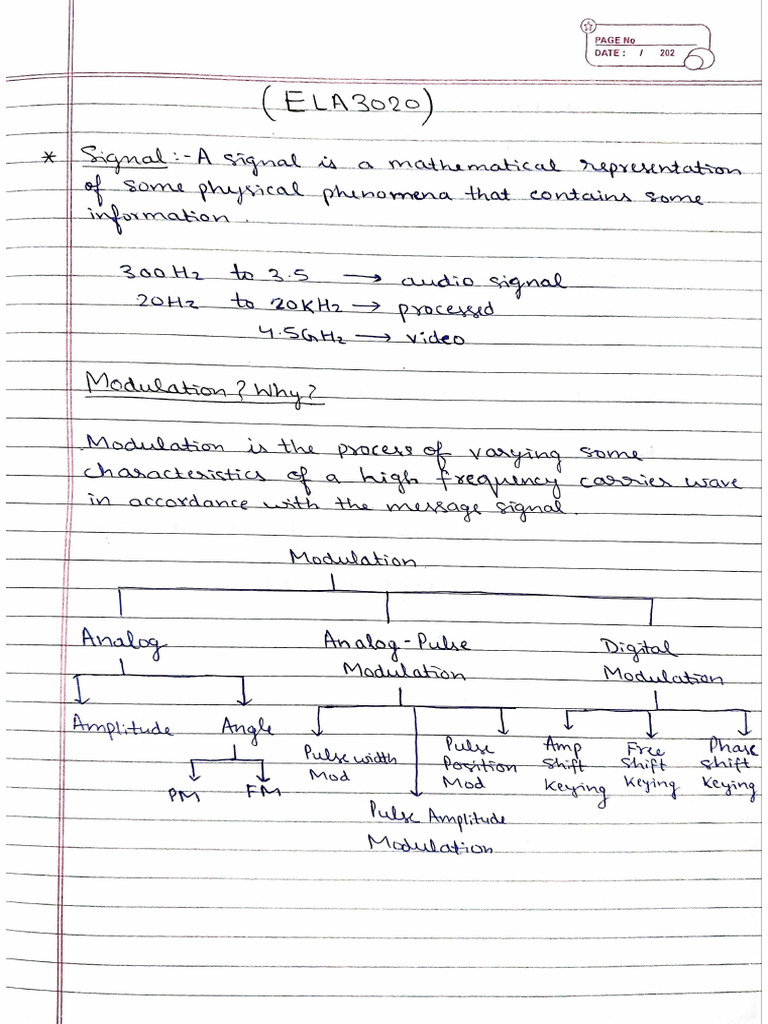 PAGE No
DATE : / 202
(ELA3020)
* Signal :- A signal is a mathematical representation
of some physical phenomena that contains some
information.
300Hz to 3.5 → audio signal
20Hz to 20KHz → processed
4.5GHz → video
Modulation? Why?
Modulation is the process of varying some
characteristics of a high frequency carrier wave
in accordance with the message signal.
Modulation
Analog
Amplitude
Angle
PM
FM
Analog-Pulse
Modulation
Pulse width
Mod
Pulse Amplitude
Modulation
Pulse
Position
Mod
Digital
Modulation
Amp
Shift
Keying
Free
Shift
Keying
Phase
Shift
Keying